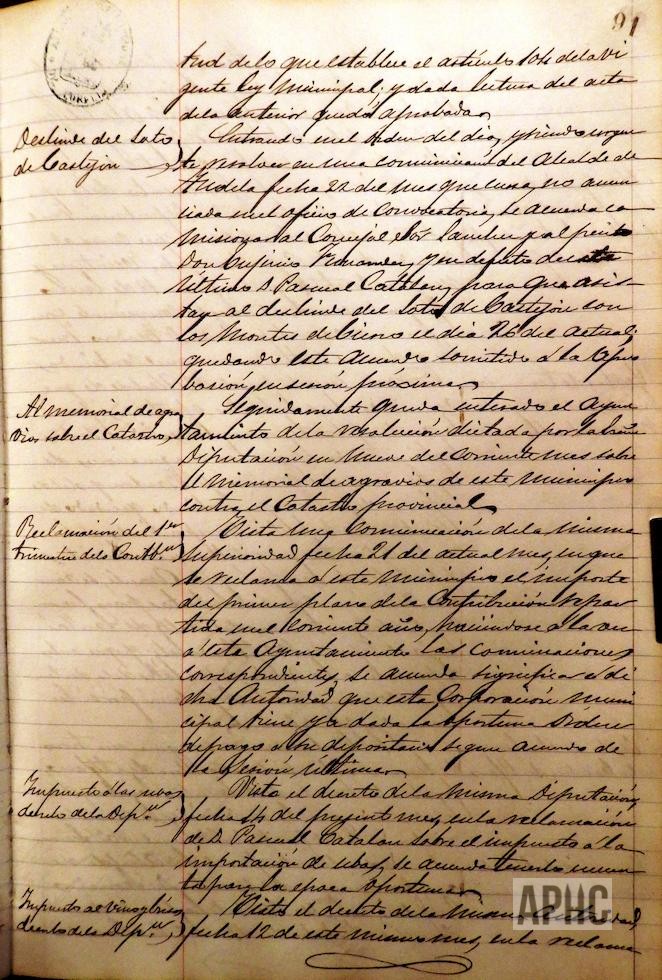 91
tud de lo que establece el artículo 104 de la vi
gente ley Municipal; y dada lectura del acta
de la anterior quedó aprobada.
Deslinde del Soto
de Castejon
Entrando en el orden del dia, y siendo urgen
te resolver en una comunicacion del Alcalde de
Tudela fecha 22 del mes que cursa, no anun
ciada en el oficio de convocatoria, se acuerda co
misionar al Concejal Sor Sanchez y al perito
Don Ceferino Fernandez, y en defecto de este
último D. Pascual Catalan, para que asis-
tan al deslinde del Soto de Castejon con
los Montes de Cierzo el dia 26 del actual;
quedando este acuerdo sometido á la apro
bacion en sesión próxima.
Al memorial de agra
vios sobre el Catastro,
Seguidamente queda enterado el Ayun
tamiento de la resolución dictada por la
Diputación en nueve del corriente mes sobre
el Memorial de agravios de este municipio
contra el Catastro provincial.
Reclamación del 1er
trimestre de la Contbn
Vista una comunicación de la misma
superioridad fecha 21 del actual mes, en que
se reclama á este municipio el importe
del primer plazo de la Contribución repar
tida en el corriente año, haciéndose á la vez
á este Ayuntamiento las cominaciones
correspondientes, se acuerda significar á di
cha Autoridad que esta Corporación muni
cipal tiene ya dada la oportuna orden
de pago á su depositario segun acuerdo de
la sesión última.
Impuesto á las uvas,
decreto de la Dipn
Visto el decreto de la misma Diputación
fecha 14 del presente mes, en la reclamación
de D. Pascual Catalan sobre el impuesto á la
importación de uvas, se acuerda tenerlo en cuen
ta para la época oportuna.
Impuesto al vino
decreto de la Dipn
Visto el decreto de la misma
fecha 12 de este mismo mes, en la reclama
APHC